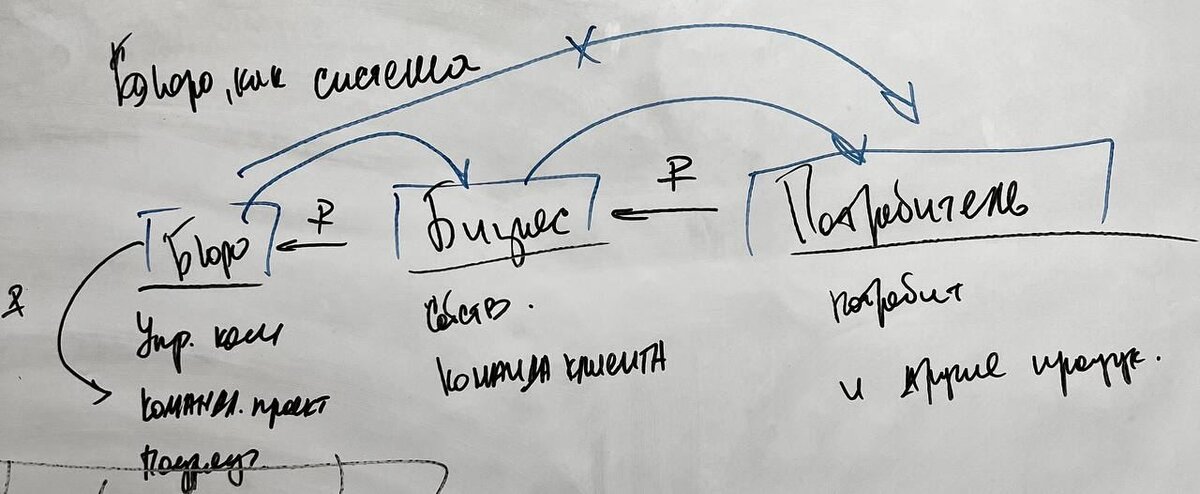 Бюро, как система
₽
₽
Бюро
Бизнес
Потребитель
₽
Упр. ком
Команда. проект
Собств.
Команда клиента
потребит
и другие продук.